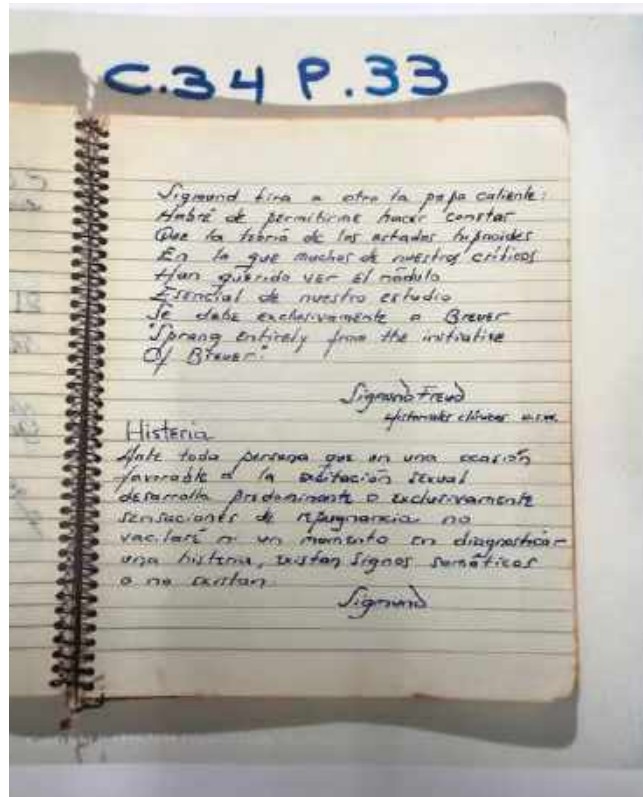 C.34 P.33
Sigmund tira a otro la papa caliente:
Habré de permitirme hacer constar
Que la teoría de los estados hipnoides
En la que muchos de nuestros críticos
Han querido ver el módulo
Esencial de nuestro estudio
Se debe exclusivamente a Breuer
"Sprang entirely from the initiative
Of Breuer."
Sigmund Freud
Historiales clínicos
Histeria
Ante toda persona que en una ocasión
favorable a la excitación sexual
desarrolla predominante o exclusivamente
sensaciones de repugnancia no
vacilaré ni un momento en diagnosticar
una histeria, existan signos somáticos
o no existan
Sigmund